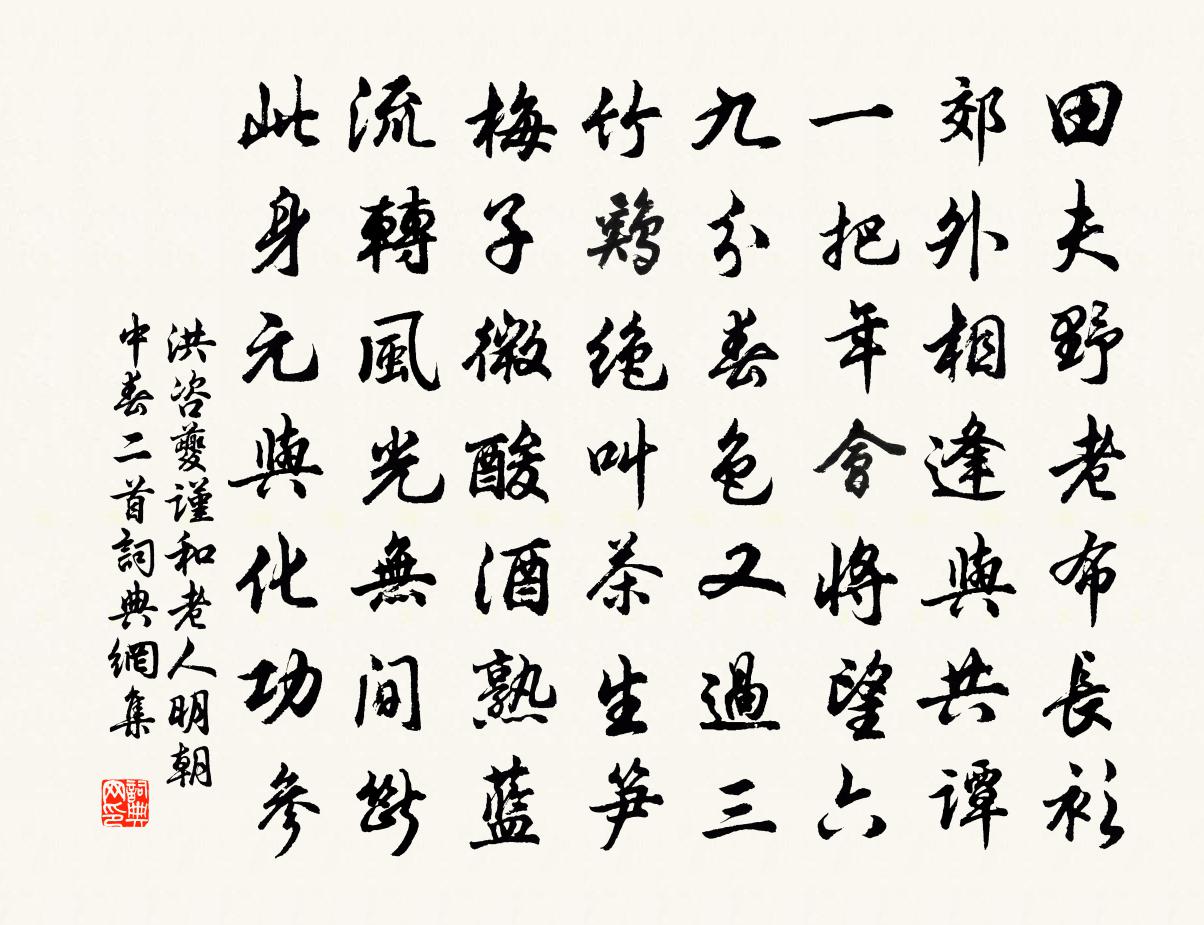 田夫野老布長衫
郊外相逢與共譚
一把年會將望六
九分春色又過三
竹鷄绝叫茶生笋
梅子微酸酒熟藍
流轉風光無间斷
此身元與化功參
洪咨夔謹和老人明朝
中春二首詞典網集
詞典網印